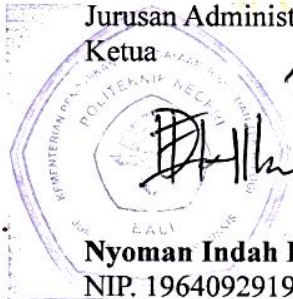 Jurusan Administ
Ketua
KEMENTERIAN PENDIDIKAN
POLITEKNIK NEGERI
BALI
Nyoman Indah
NIP. 1964092919